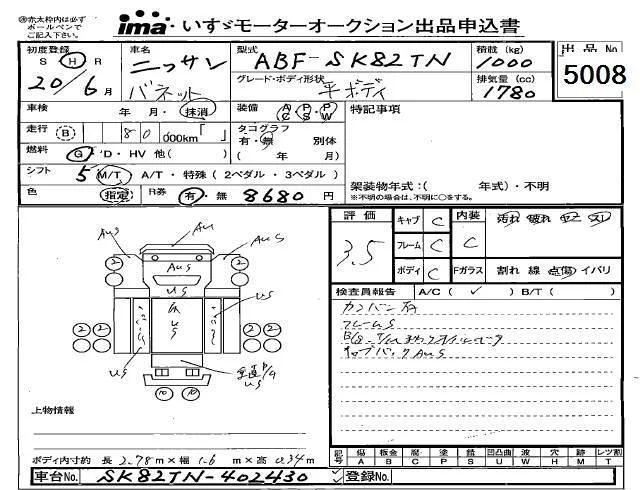 ※赤太枠内は必ず
ボールペンで
ご記入下さい。
ima いすゞモーターオークション出品申込書
初度登録 S H R 20/6月
車名 ニッサン バネット
型式 ABF-SK82TN
グレード・ボディ形状 平ボディ
積載(kg) 1000
排気量(cc) 1780
出品No 5008
車検 年 月・抹消
装備 A/C P/S P/W
特記事項
走行 B 80 000km「 」
タコグラフ 有・無 別体
( 年 月)
燃料 G・D・HV 他( )
シフト 5 M/T A/T・特殊(2ペダル・3ペダル)
色 指定 R券 有・無 8680円
架装物年式:( 年式)・不明
※不明の場合は、不明に○をする。
評価 3.5
キャブ C 内装 汚れ 破れ
フレーム C C
ボディ C Fガラス 割れ 線 点傷 イバリ
検査員報告 A/C( ✓ ) B/T( )
カンバン有
フレームS
AUS AUS
AUS
US
US US
US US
2 2 2 2
2 2 2 2
10 10
上物情報
ボディ内寸約 長 2.78m×幅 1.6m×高 0.34m
記号 傷 板金 腐 塗 錆 凹凸曲 波 穴 跡 レツ割
A B C P S U W H M T
車台No. SK82TN-402430
登録No.